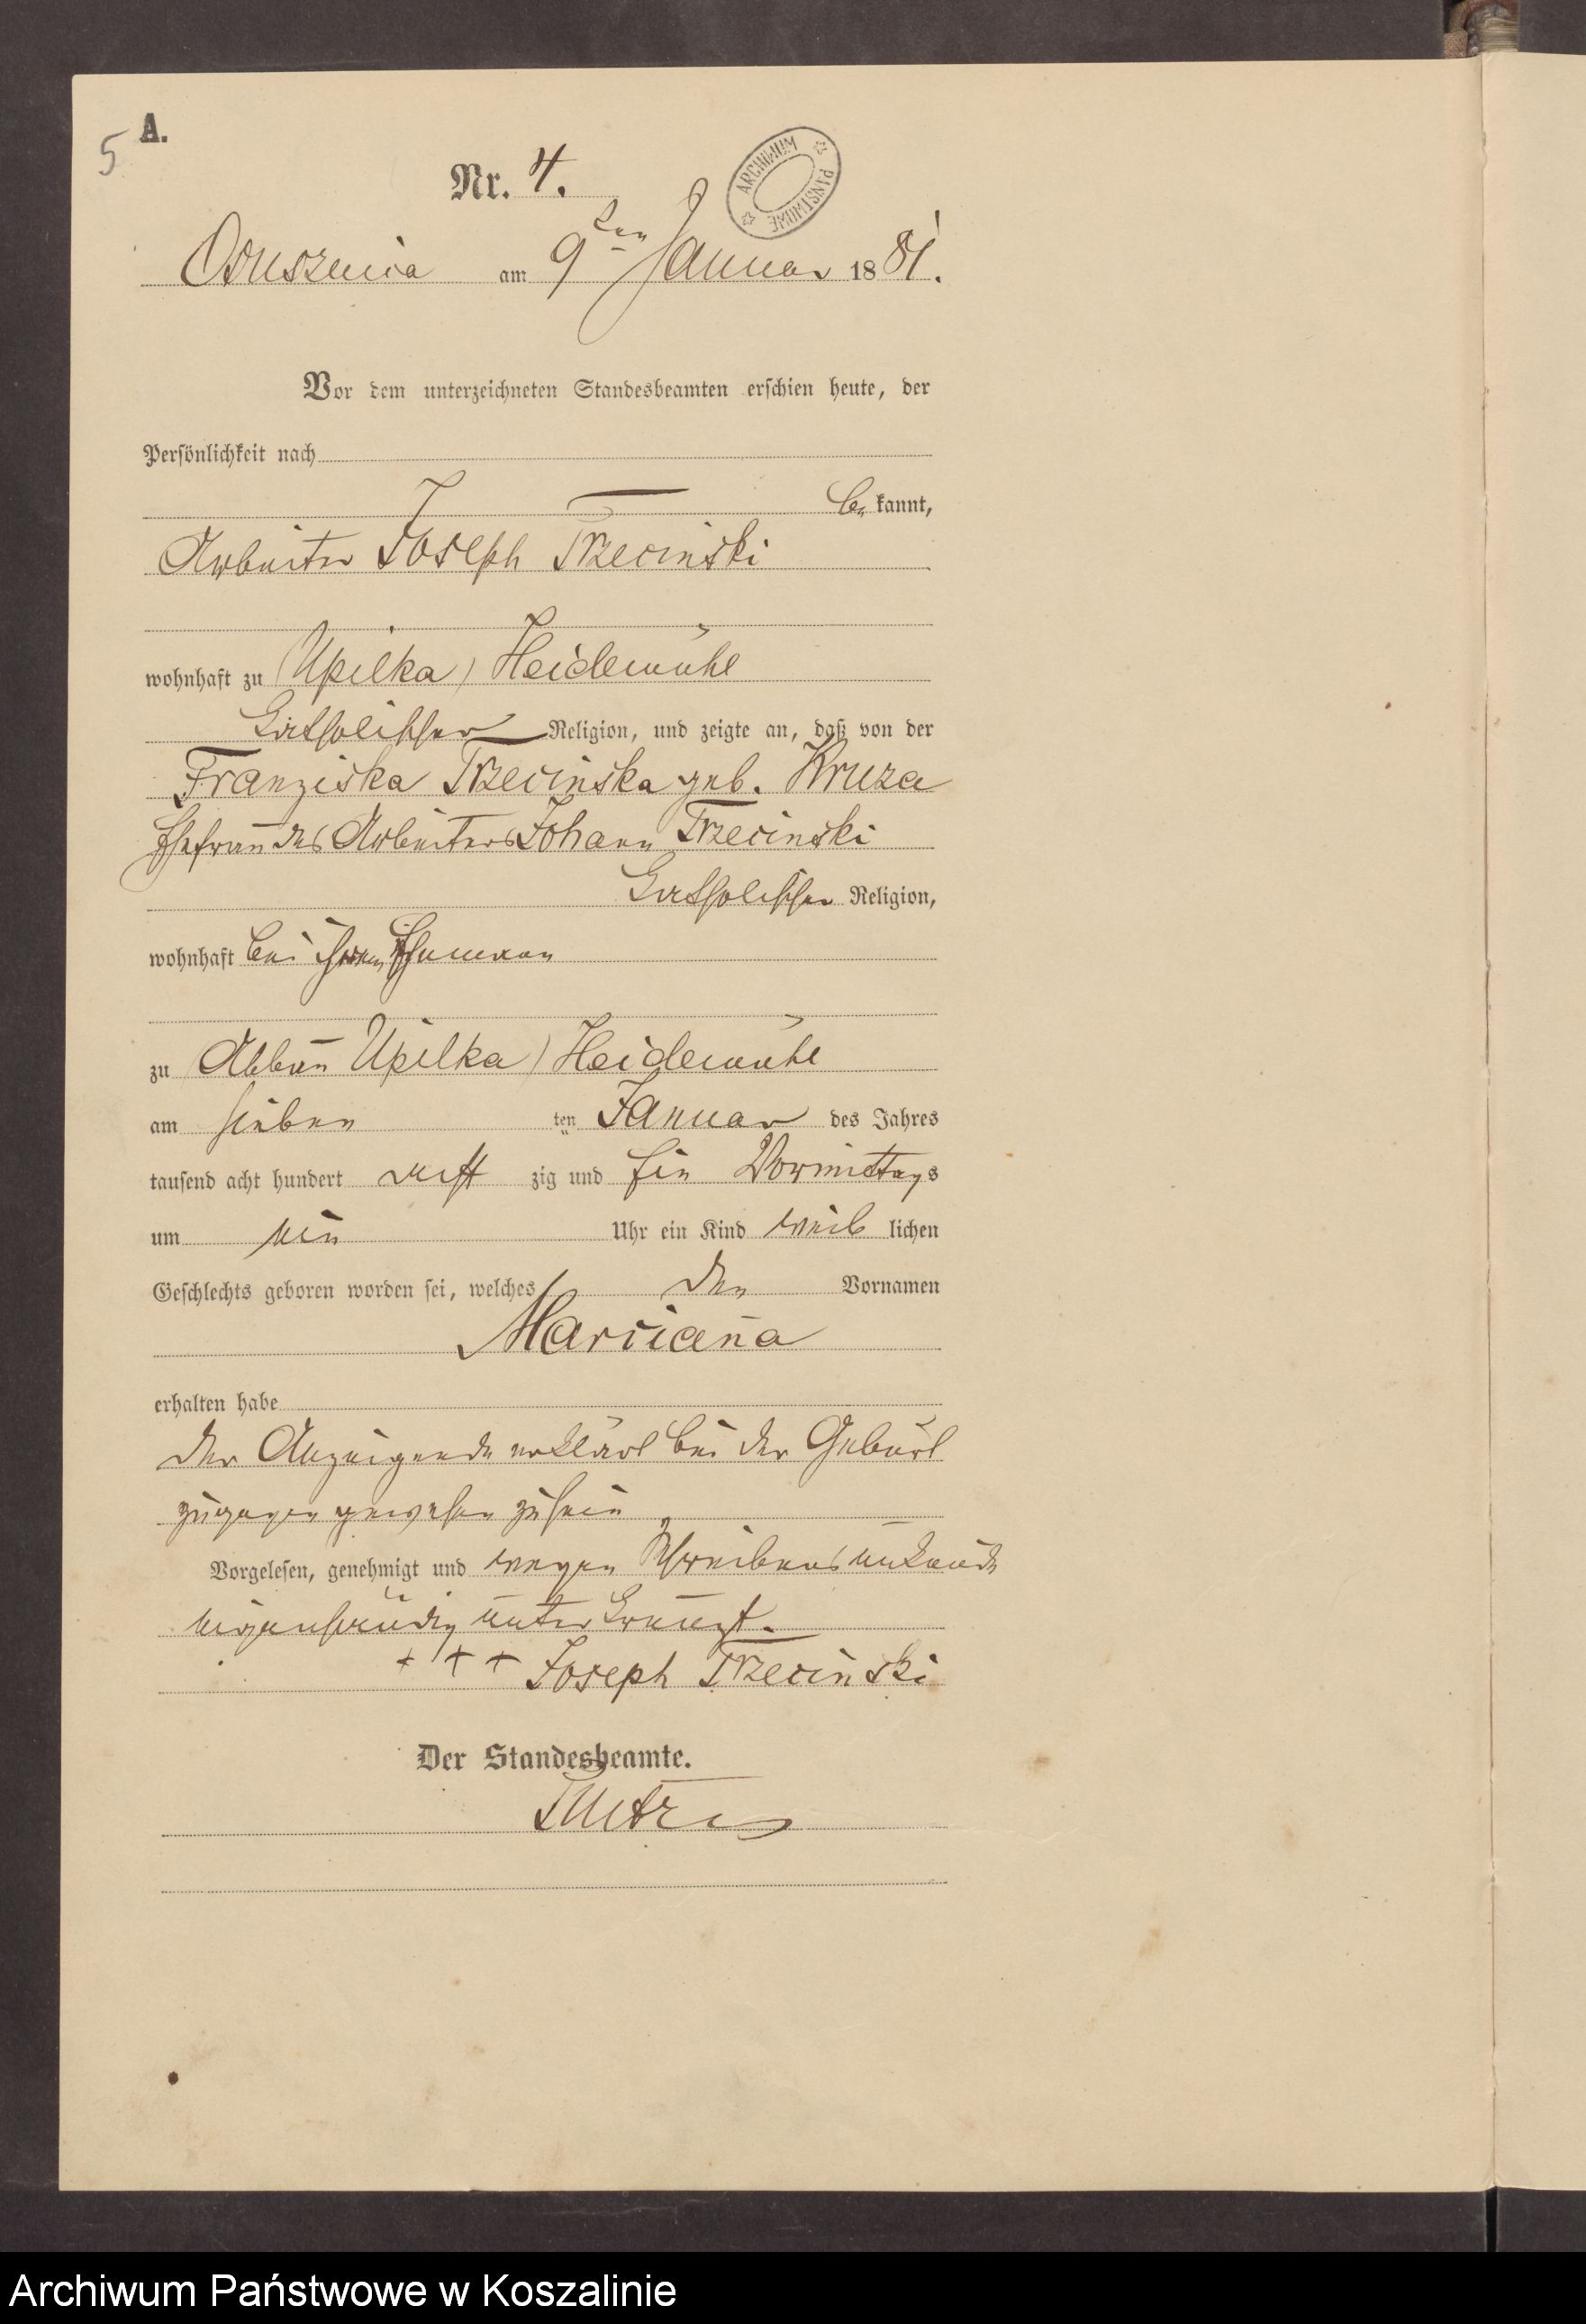 5
A.
Nr. 4.
ARCHIWUM PAŃSTWOWE
Ossuszenica am 9ten Januar 1881.
Vor dem unterzeichneten Standesbeamten erschien heute, der
Persönlichkeit nach
bekannt,
Arbeiter Joseph Trzecinski
wohnhaft zu (Upilka) Heidemühl
katholischer Religion, und zeigte an, daß von der
Franziska Trzecinska geb. Kruza
Ehefrau des Arbeiters Johann Trzecinski
katholischer Religion,
wohnhaft bei ihrem Ehemann
zu Abbau Upilka) Heidemühl
am sieben ten Januar des Jahres
tausend acht hundert acht zig und ein Vormittags
um ein Uhr ein Kind weib lichen
Geschlechts geboren worden sei, welches den Vornamen
Marciana
erhalten habe
Der Anzeigende erklärt bei der Geburt
zugegen gewesen zu sein
Vorgelesen, genehmigt und wegen Schreibens unkunde
eigenhändig unterkreuzt.
+ + + Joseph Trzecinski
Der Standesbeamte.
Archiwum Państwowe w Koszalinie